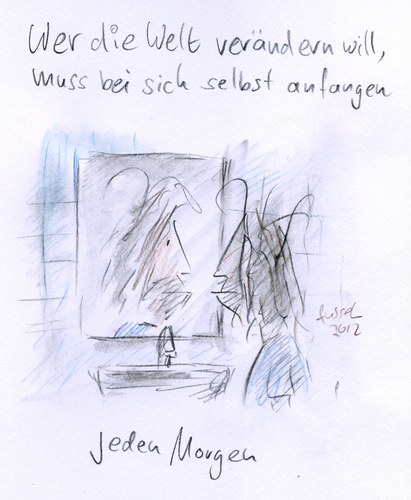 Wer die Welt verändern will,
muss bei sich selbst anfangen
2012
Jeden Morgen